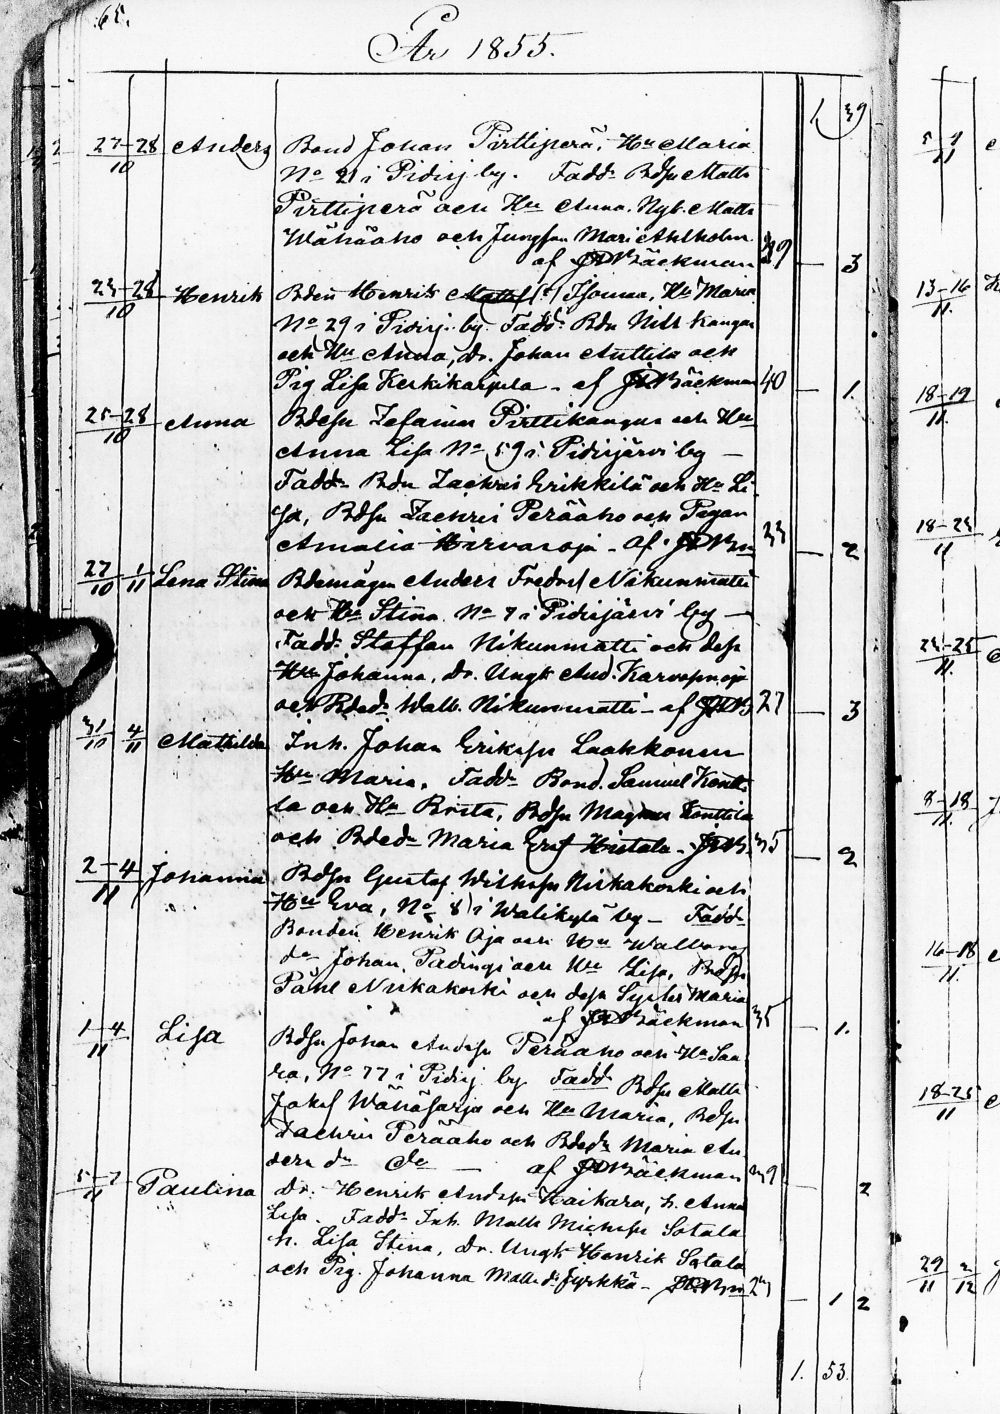 65.
År 1855.
1 39
27–28/10 Anders Bond Johan Pirttiperä, Hu Maria
No 21 i Pidisj. by. Fadd. Bdsn Matts
Pirttiperä och Hu Anna. Nyb. Matts
Wähäaho och Jungfru Mari Ahlholm
af JDBäckman 39 — 3
23–28/10 Henrik Bden Henrik Isomaa, Hu Maria
No 29 i Pidisj. by. Fadd. Bdn Nils Kangas
och Hu Anna, Dr. Johan Anttila och
Pig. Lisa Keskikarjula – af JDBäckman 40 — 1.
25–28/10 Anna Bdesn Zefanias Pirttikangas och Hu
Anna Lisa No 59 i Pidisjärvi by —
Fadd. Bdn Zachris Erikkilä och Hu Li-
sa, Bdsn Zachris Perääho och Pigan
Amalia Hirvasoja – af JDBm 33 — 2
27/10 1/11 Lena Stina Bdemågen Anders Fredrs Nikunmatti
och Hu Stina No 7 i Pidisjärvi by —
Fadd. Staffan Nikunmatti och dess
Hu Johanna, Dr. Ungk And. Karvasoja
och Bded. Walb. Nikunmatti – af JDB 27 — 3
31/10 4/11 Mathilda Inh. Johan Eriksn Laakkonen
Hu Maria. Fadd. Bond. Samuel Kontti-
la och Hu Brita, Bdsn Magnus Konttila
och Bded. Maria Hietala – JDB. 35 — 2
2–4/11 Johanna Bdsn Gustaf Wilhsn Niskakoski och
Hu Eva, No 8 i Walikylä by – Fadd.
Bonden Henrik Oja och Hu Walborg
do Johan Padingi och Hu Lisa, Bdsn
Påhl Niskakoski och dess Syster Maria
af JDBäckman 35 — 1.
1–4/11 Lisa Bdsn Johan Andsn Perääho och Hu Saa-
ra, No 77 i Pidisj by Fadd Bdsn Matts
Jakss Wähäsarja och Hu Maria, Bdsn
Zachris Perääho och Bded. Maria An-
ders dr do — af JDBäckman 39 2
5–7/11 Paulina Dr. Henrik Andsn Haikara, h. Anna
Lisa. Fadd. Inh. Matts Michsn Sotala
h. Lisa Stina, Dr. Ungk Henrik Sotala
och Pig. Johanna Matts dr Jyrkkä – JDBm 23 — 1 2
1. 53.